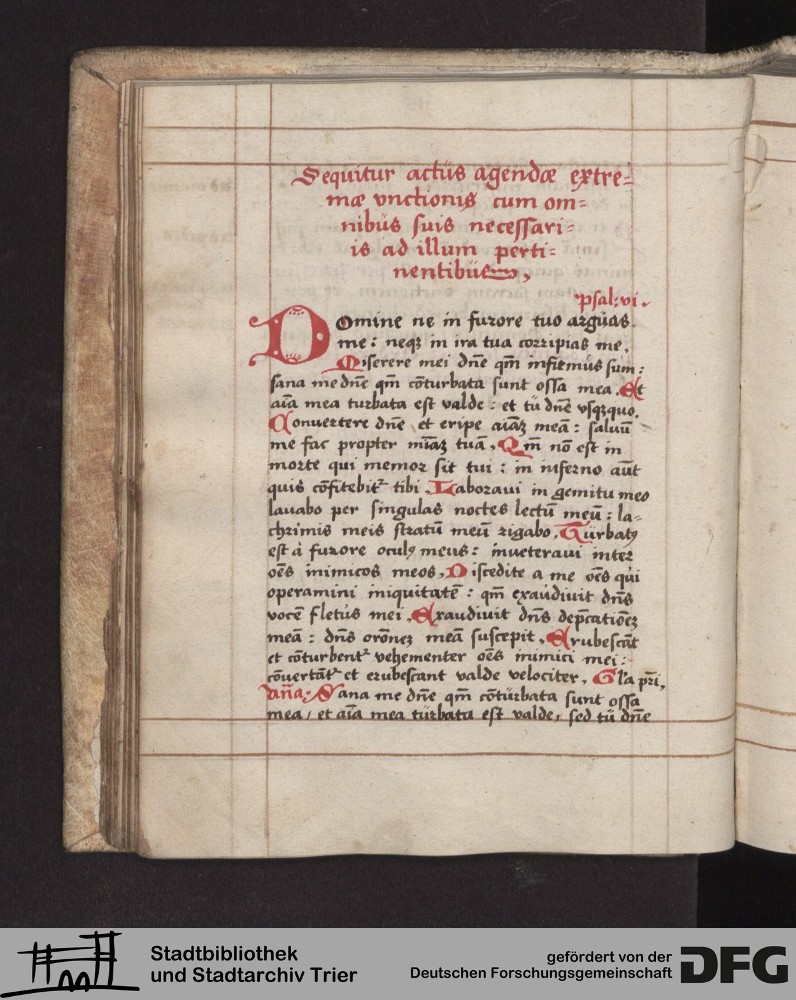 Sequitur actus agendæ extre=
mæ vnctionis cum om=
nibus suis necessari=
is ad illum perti=
nentibus,
psal: vi.
Domine ne in furore tuo arguas
me: neqꝫ in ira tua corripias me,
Miserere mei dn̄e qm̄ infirmus sum:
sana me dn̄e qm̄ cōturbata sunt ossa mea. Et
aīa mea turbata est valde: et tū dn̄e vsqꝫquo.
Conuertere dn̄e et eripe aīaꝫ meā: saluū
me fac propter mīaꝫ tuā. Qm̄ nō est in
morte qui memor sit tui: in inferno aūt
quis cōfitebit᷑ tibi. Laboraui in gemitu meo
lauabo per singulas noctes lectū meū: la=
chrimis meis stratū meū rigabo. Turbatꝰ
est à furore oculꝰ meus: inueteraui inter
oēs inimicos meos. Discedite a me oēs qui
operamini iniquitatē: qm̄ exaudiuit dn̄s
vocē fletus mei. Exaudiuit dn̄s dep̄cationeꝫ
meā: dn̄s orōneꝫ meā suscepit. Erubescāt
et cōturbent᷑ vehementer oēs inimici mei:
cōuertāt᷑ et erubescant valde velociter. Gl'a pr̄i,
Aña: Sana me dn̄e qm̄ cōturbata sunt ossa
mea, et aīa mea turbata est valde, sed tū dn̄e
Stadtbibliothek
und Stadtarchiv Trier
gefördert von der
Deutschen Forschungsgemeinschaft
DFG